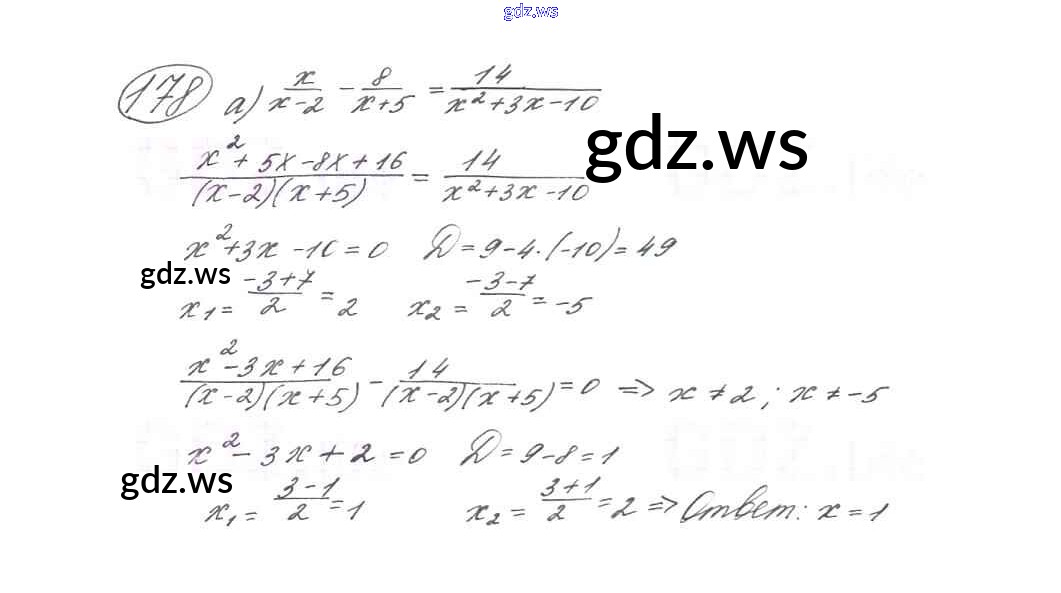 gdz.ws
178 а) x/(x-2) - 8/(x+5) = 14/(x²+3x-10)
gdz.ws
(x²+5x-8x+16)/((x-2)(x+5)) = 14/(x²+3x-10)
x²+3x-10=0 D=9-4·(-10)=49
gdz.ws
x₁=(-3+7)/2=2 x₂=(-3-7)/2=-5
(x²-3x+16)/((x-2)(x+5)) - 14/((x-2)(x+5)) =0 => x≠2; x≠-5
x²-3x+2=0 D=9-8=1
gdz.ws
x₁=(3-1)/2=1 x₂=(3+1)/2=2 => Ответ: x=1